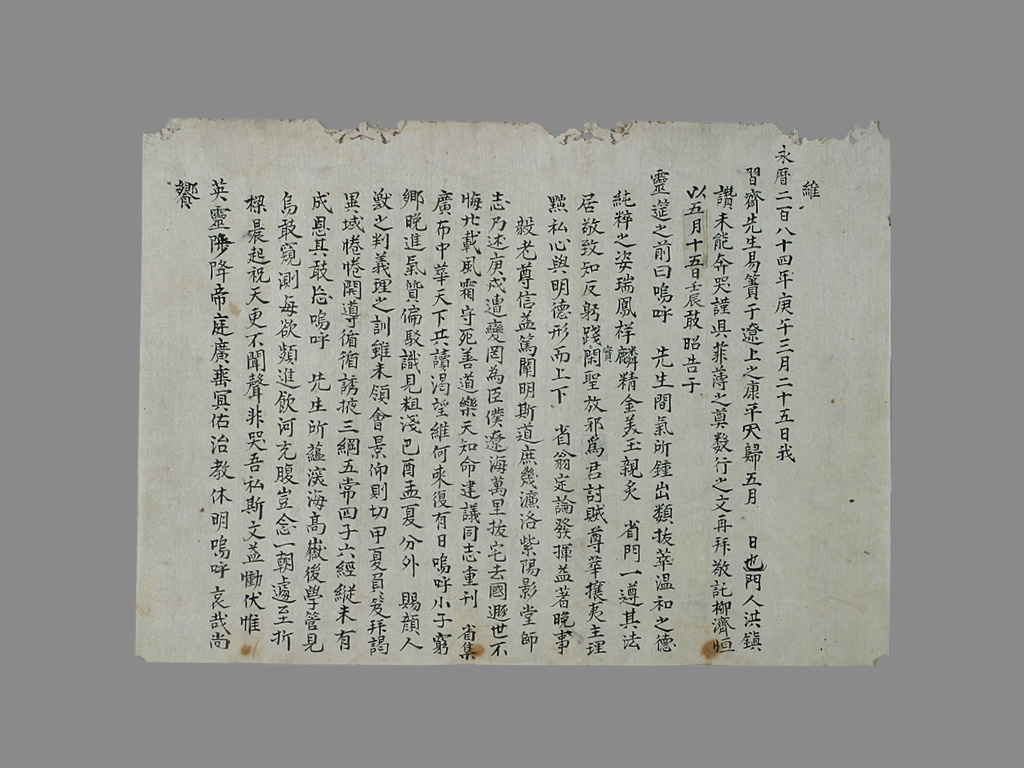 維
永曆二百八十四年庚午三月二十五日我
習齋先生易簀于遼上之康平宍歸五月 日也門人洪鎭
讚未能奔哭謹具菲薄之奠数行之文再拜敬託柳濟恒
以五月十五日壬辰敢昭告于
靈筵之前曰嗚呼 先生間氣所鍾出類拔萃温和之德
純粹之姿瑞鳳祥麟精金美玉親炙 省門一遵其法
居敬致知反躬踐實閑聖放邪篤君討賊尊華攘夷主理
黜私心與明德形而上下 省翁定論發揮益著晚事
毅老尊信益篤闡明斯道庶幾濂洛紫陽影堂師
志乃述庚戌遭變罔為臣僕遼海萬里拔宅去國遯世不
悔廿載風霜守死善道樂天知命建議同志重刊 省集
廣布中華天下共讀渴望維何來復有日嗚呼小子窮
鄉晚進氣質偏駁識見粗淺己酉孟夏分外 賜顔人
獸之判義理之訓雖未領會景仰則切甲夏負笈拜謁
異域惓惓開導循循誘掖三綱五常四子六經縱未有
成恩其敢忘嗚呼 先生所蘊溟海高嶽後學管見
烏敢窺測每欲頻進飲河充腹豈念一朝遽至折
樑晨起祝天更不聞聲非哭吾私斯文益慟伏惟
英靈陟降帝庭廣垂冥佑治教休明嗚呼哀哉尚
饗